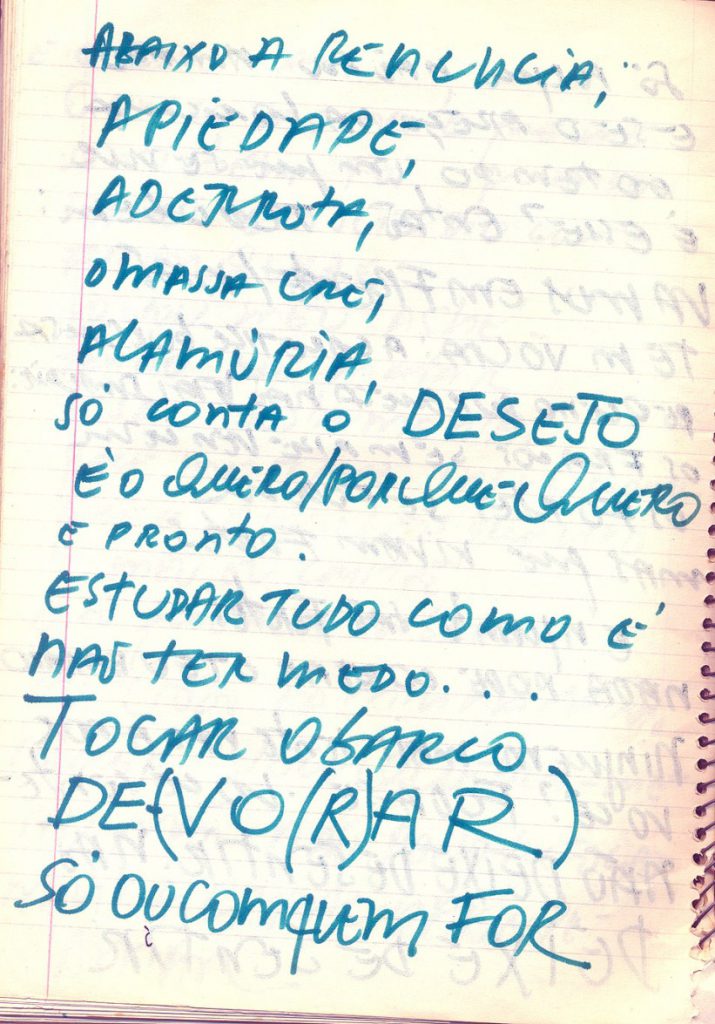 ABAIXO A RENÚNCIA,
A PIEDADE,
A DERROTA,
O MASSACRE,
A LAMÚRIA,
SÓ CONTA O DESEJO
É O QUERO/PORQUE-QUERO
E PRONTO.
ESTUDAR TUDO COMO É
NÃO TER MEDO...
TOCAR O BARCO
DE(VO(R)AR)
SÓ OU COM QUEM FOR